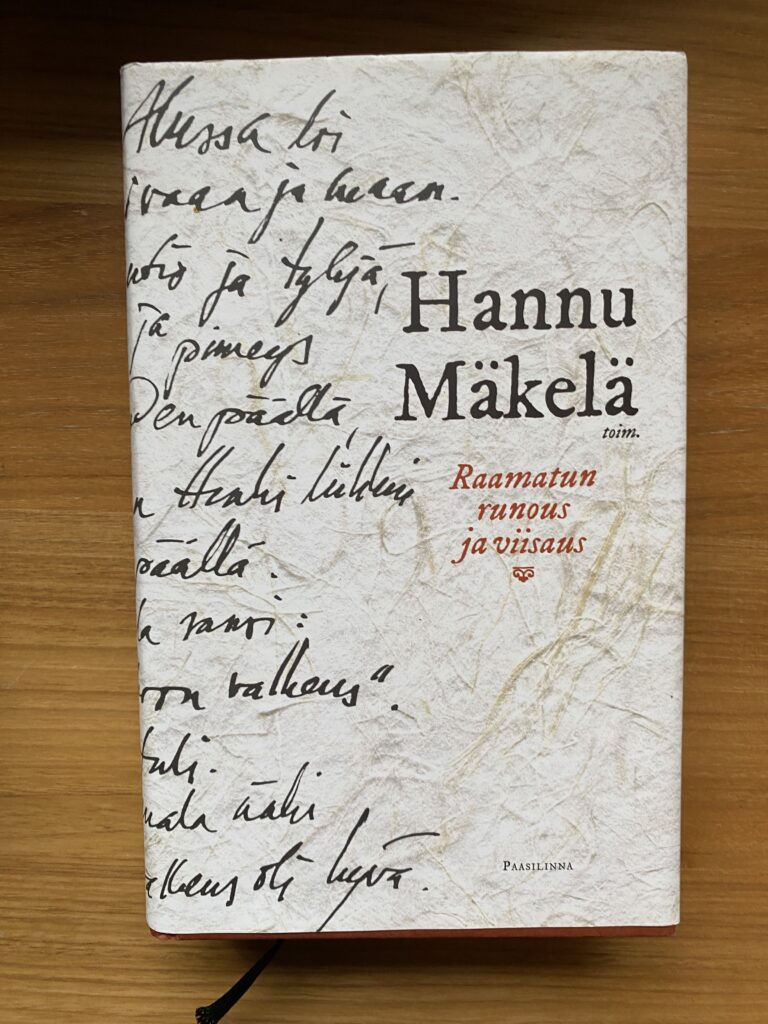 Alussa loi
ivaan ja maan.
utio ja tyhjä,
ja pimeys
den päällä,
n Henki liikkui
päällä.
la sanoi:
oon valkeus".
tuli.
mala näki
alkeus oli hyvä.
Hannu
Mäkelä
toim.
Raamatun
runous
ja viisaus
PAASILINNA